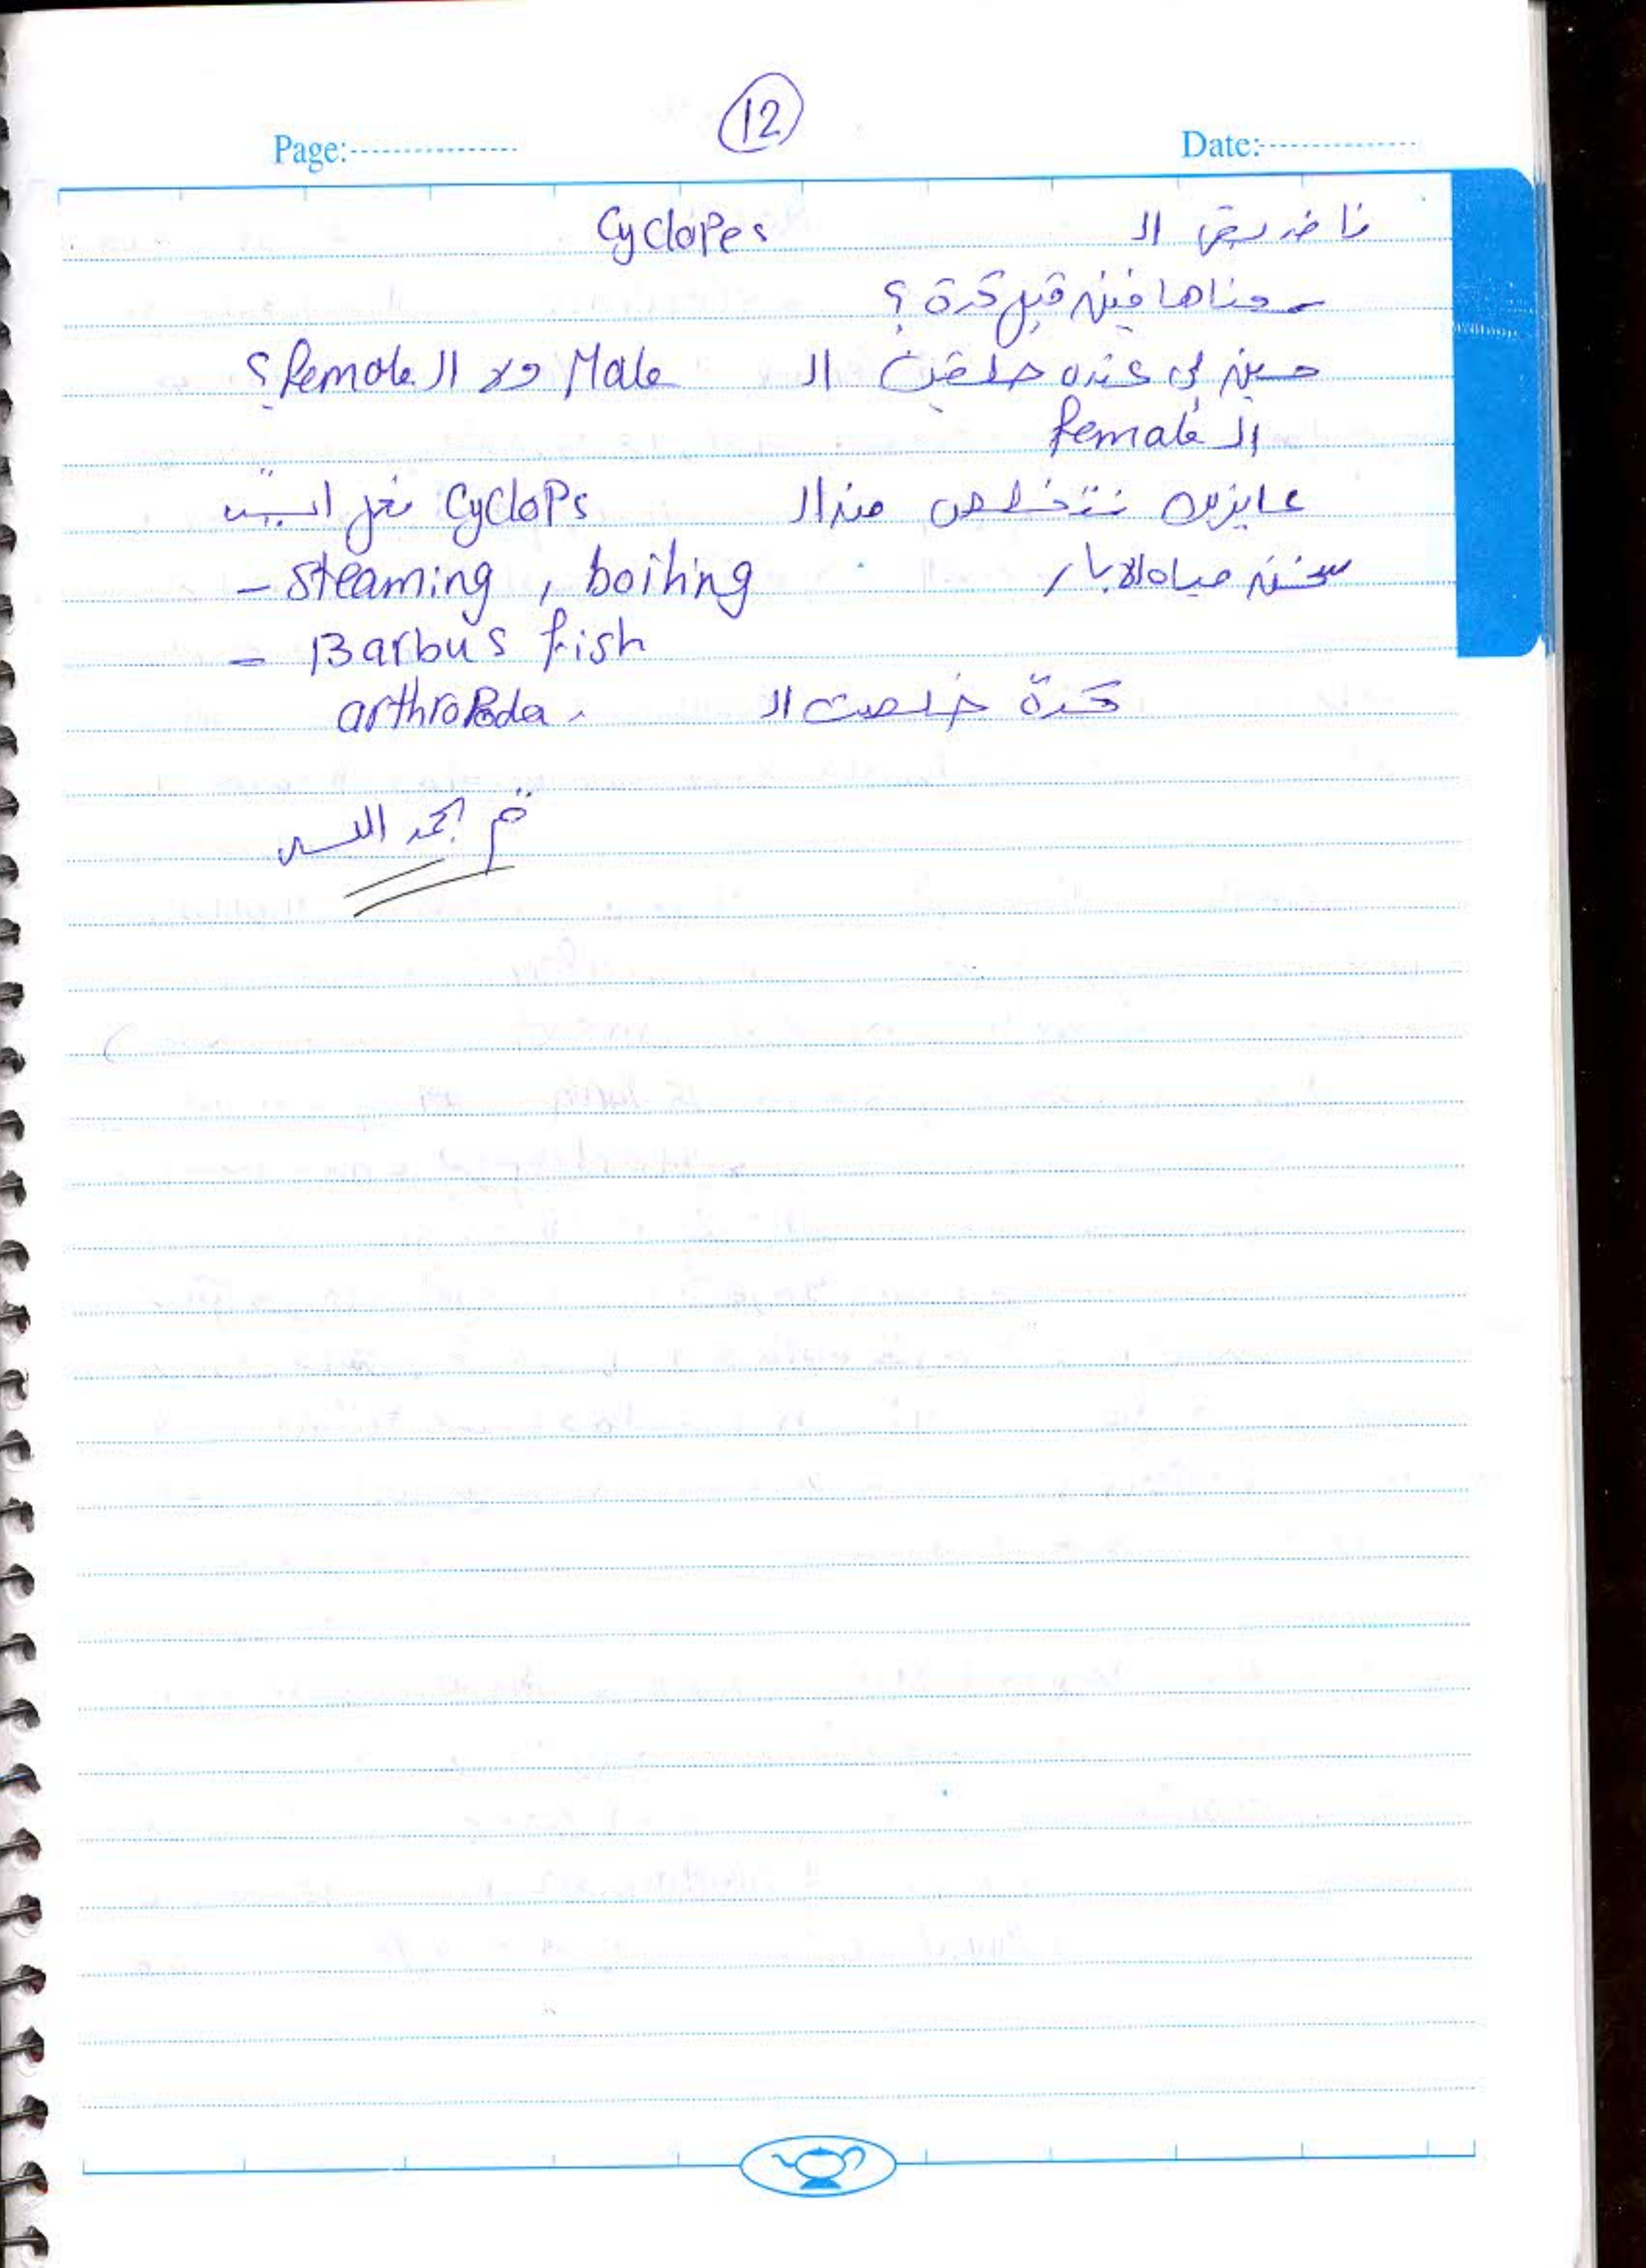 12
Page:
Date:
ال Cyclopes
سمعناها فين قبل كدة ؟
مين لي عنده حلقين ال Male ولا ال female؟
ال female
عايزين نتخلص من ال Cyclops نعمل ايه
سخن مياه الابار
- steaming , boiling
- Barbus fish
كدة خلصت ال arthropoda.
تم بحمد الله